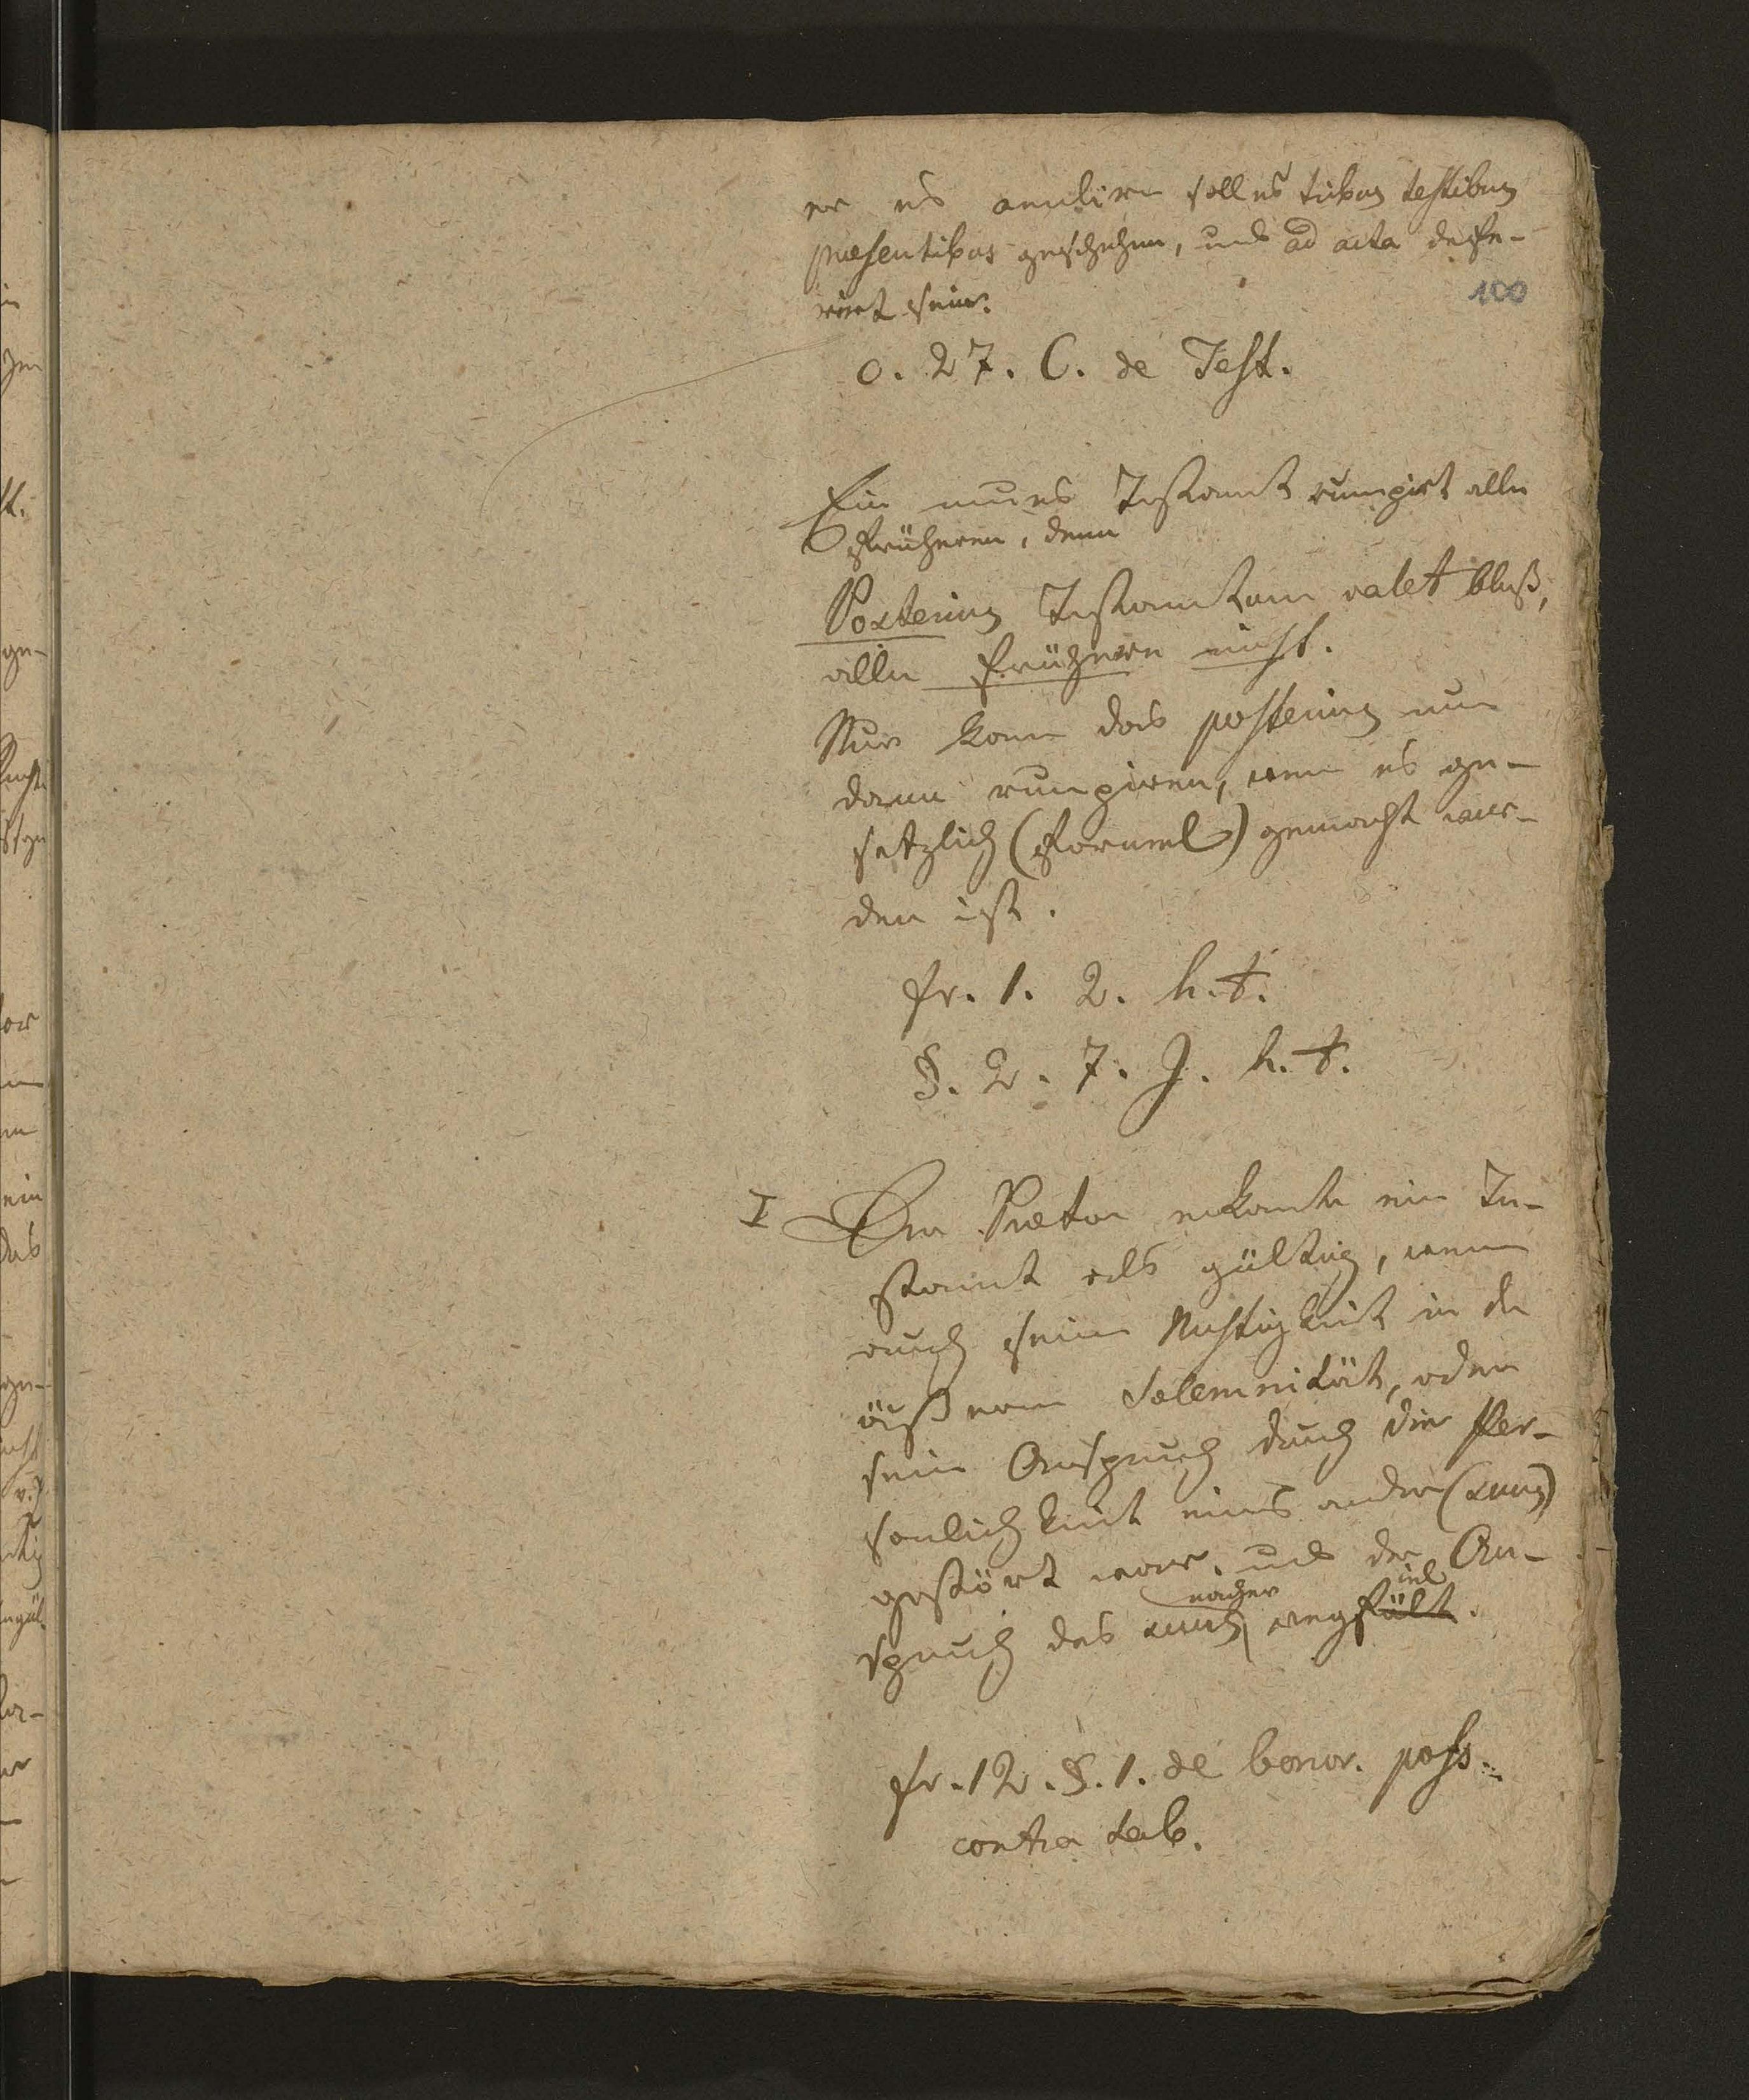 er es annulirn soll es tribus testibus
praesentibus geschehen, und ad acta defe-
rirt sein.
100
c. 27. C. de Test.
Ein neues Testament rumpirt alle
früheren, denn
Posterius Testamentum valet bloß,
alle frühern nicht.
Nur kann das posterius nur
dann rumpiren, wenn es ge-
setzlich (formel) gemacht wor-
den ist.
fr. 1. 2. h. t.
§. 2. 7. J. h. t.
I Der Praetor erkante ein Te-
stament als gültig, wenn
auch seine Nichtigkeit in der
äußeren Solemnität, oder
sein Anspruch durch die Per-
sönlichkeit eines andern (suus)
gestört war, und der An-
spruch des suus nacher wegfält iel.
fr. 12. §. 1. de bonor. poss.
contra tab.